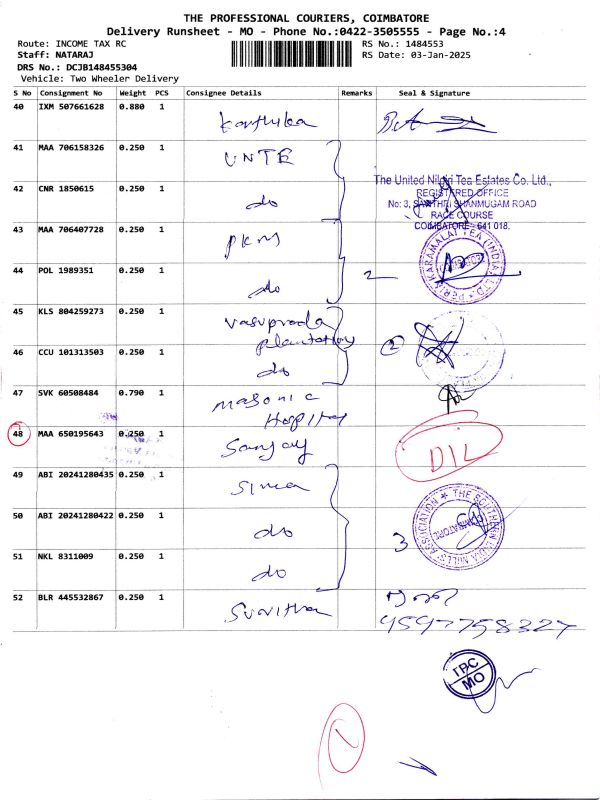 THE PROFESSIONAL COURIERS, COIMBATORE
Delivery Runsheet - MO - Phone No.:0422-3505555 - Page No.:4
Route: INCOME TAX RC RS No.: 1484553
Staff: NATARAJ RS Date: 03-Jan-2025
DRS No.: DCJB148455304
Vehicle: Two Wheeler Delivery
S No Consignment No Weight PCS Consignee Details Remarks Seal & Signature
40 IXM 507661628 0.880 1 Karthika
41 MAA 706158326 0.250 1 UNTE
The United Nilgiri Tea Estates Co. Ltd.,
42 CNR 1850615 0.250 1 do REGISTERED OFFICE
No: 3, SAVITHRI SHANMUGAM ROAD
RACE COURSE
COIMBATORE - 641 018.
43 MAA 706407728 0.250 1 PKM
44 POL 1989351 0.250 1 do 2
KARAMALAI TEA (INDIA) LTD
45 KLS 804259273 0.250 1 Vasuprada
plantation
46 CCU 101313503 0.250 1 do 2
47 SVK 60508484 0.790 1 Masonic
Hospital
48 MAA 650195643 0.250 1 Sanjay DIL
49 ABI 20241280435 0.250 1 Sima
THE SOUTHERN INDIA MILLS' ASSOCIATION
COIMBATORE
50 ABI 20241280422 0.250 1 do 3
51 NKL 8311009 0.250 1 do
52 BLR 445532867 0.250 1 Sunitha
9597758327
TPC
MO